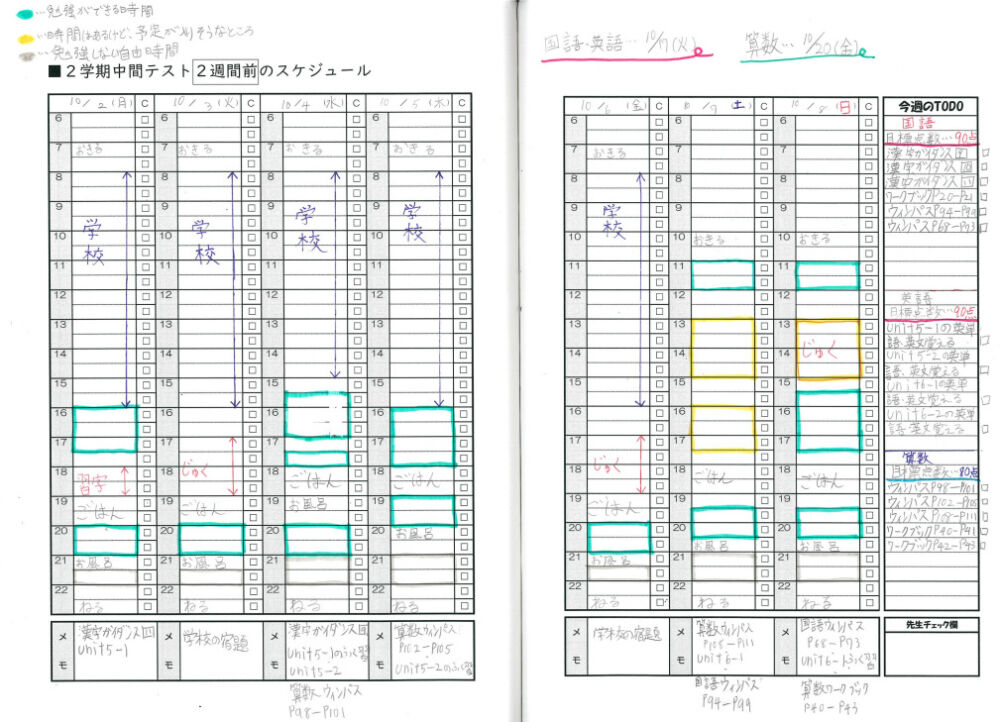 …勉強ができる時間
…時間はあるけど、予定が入りそうなところ
…勉強しない自由時間
■2学期中間テスト2週間前のスケジュール
国語・英語…10/17(火)
算数…10/20(金)
10/2(月) C 10/3(火) C 10/4(水) C 10/5(木) C
6 6 6 6
7 おきる 7 おきる 7 おきる 7 おきる
8 8 8 8
9 9 9 9
学校 学校 学校 学校
10 10 10 10
11 11 11 11
12 12 12 12
13 13 13 13
14 14 14 14
15 15 15 15
16 16 16 16
17 17 17 17
じゅく
18 習字 18 18 ごはん 18 ごはん
19 ごはん 19 ごはん 19 お風呂 19
20 20 20 20 お風呂
21 お風呂 21 お風呂 21 21
22 22 22 22
ねる ねる ねる ねる
メモ
漢字ガイダンス四
unit5-1
メモ
学校の宿題
メモ
漢字ガイダンス
unit5-1のふく習
unit5-2
算数ウィンパス
P98-P101
メモ
算数ウィンパス
P102-P105
unit5-2のふく習
10/6(金) C 10/7(土) C 10/8(日) C
6 6 6
7 おきる 7 7
8 8 8
9 9 9
学校
10 10 おきる 10 おきる
11 11 11
12 12 12
13 13 13
じゅく
14 14 14
15 15 15
16 16 16
17 17 17
じゅく
18 18 ごはん 18 ごはん
19 ごはん 19 19
20 20 20
お風呂 お風呂
21 お風呂 21 21
22 22 22
ねる ねる ねる
メモ
学校の宿題
メモ
算数ウィンパス
P108-P111
unit6-1
国語ウィンパス
P94-P99
メモ
国語ウィンパス
P68-P73
unit6-1ふく習
算数ワークブック
P40-P43
今週のTODO
国語
目標点数…90点
漢字ガイダンス
漢字ガイダンス
漢字ガイダンス
ワークブックP20-P21
ウィンパスP94-P99
ウィンパスP68-P73
英語
目標点数…90点
unit5-1の英単
語・英文覚える
unit5-2の英単
語・英文覚える
unit6-1の英単
語・英文覚える
unit6-2の英単
語・英文覚える
算数
目標点数…80点
ウィンパスP98-P101
ウィンパスP102-P105
ウィンパスP108-P111
ワークブックP40-P41
ワークブックP42-P43
先生チェック欄